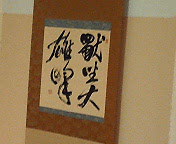 獨坐大
雄峰